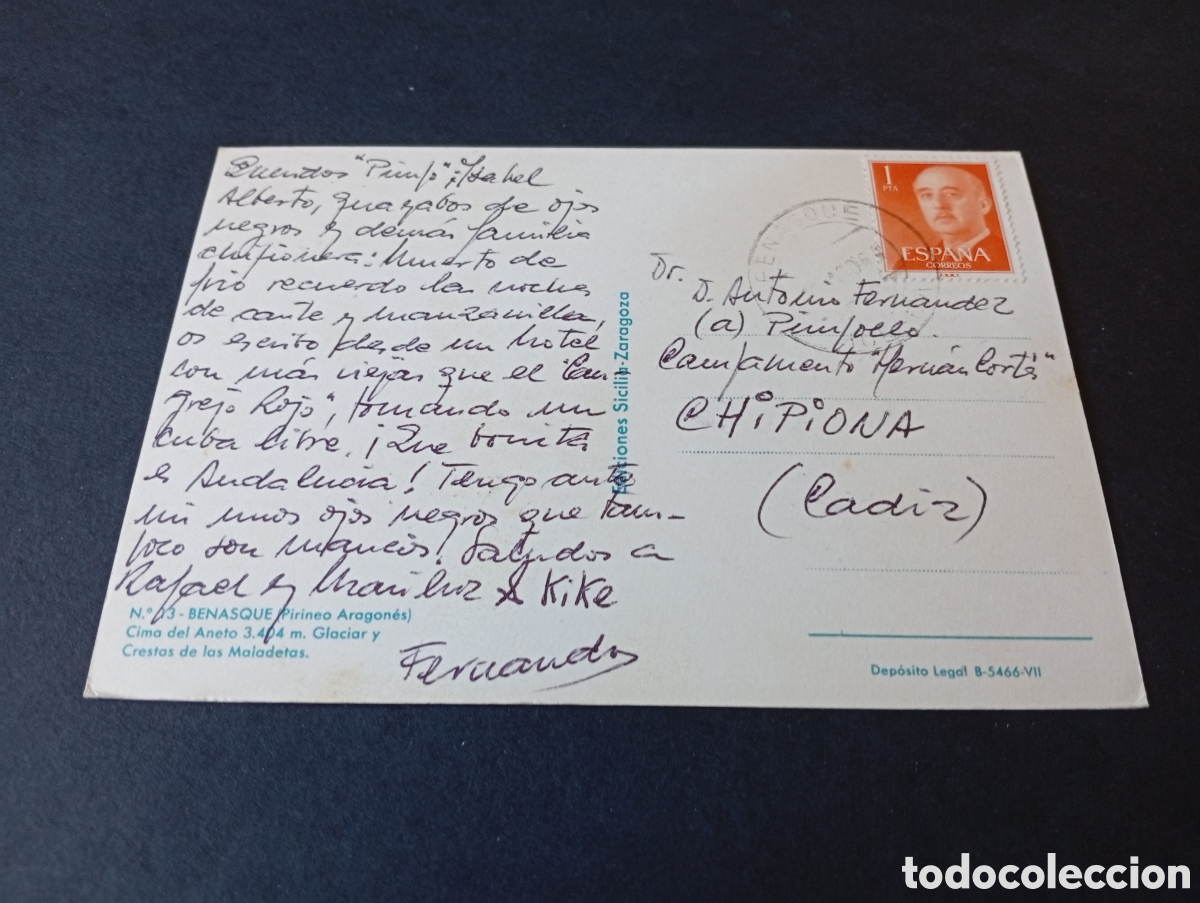 Queridos "Pimpo", Isabel
Alberto, guayabos de ojos
negros y demás familia
chipionera: Muerto de
frio recuerdo las noches
de cante y manzanilla,
os escribo desde un hotel
con más viejas que el "Can-
grejo Rojo", tomando un
cuba libre. ¡Que bonita
es Andalucia! Tengo ante
mi unos ojos negros que tam-
poco son mancos! Saludos a
Rafael y Mariluz & Kike
Fernando
N.° 13 - BENASQUE (Pirineo Aragonés)
Cima del Aneto 3.404 m. Glaciar y
Crestas de las Maladetas.
Ediciones Sicilia-Zaragoza
1
PTA
ESPAÑA
CORREOS
BENASQUE
Dr.
D. Antonio Fernandez
(a) Pimpollo.
Campamento "Hernán Cortés"
CHIPIONA
(Cadiz)
Depósito Legal B-5466-VII
todocoleccion